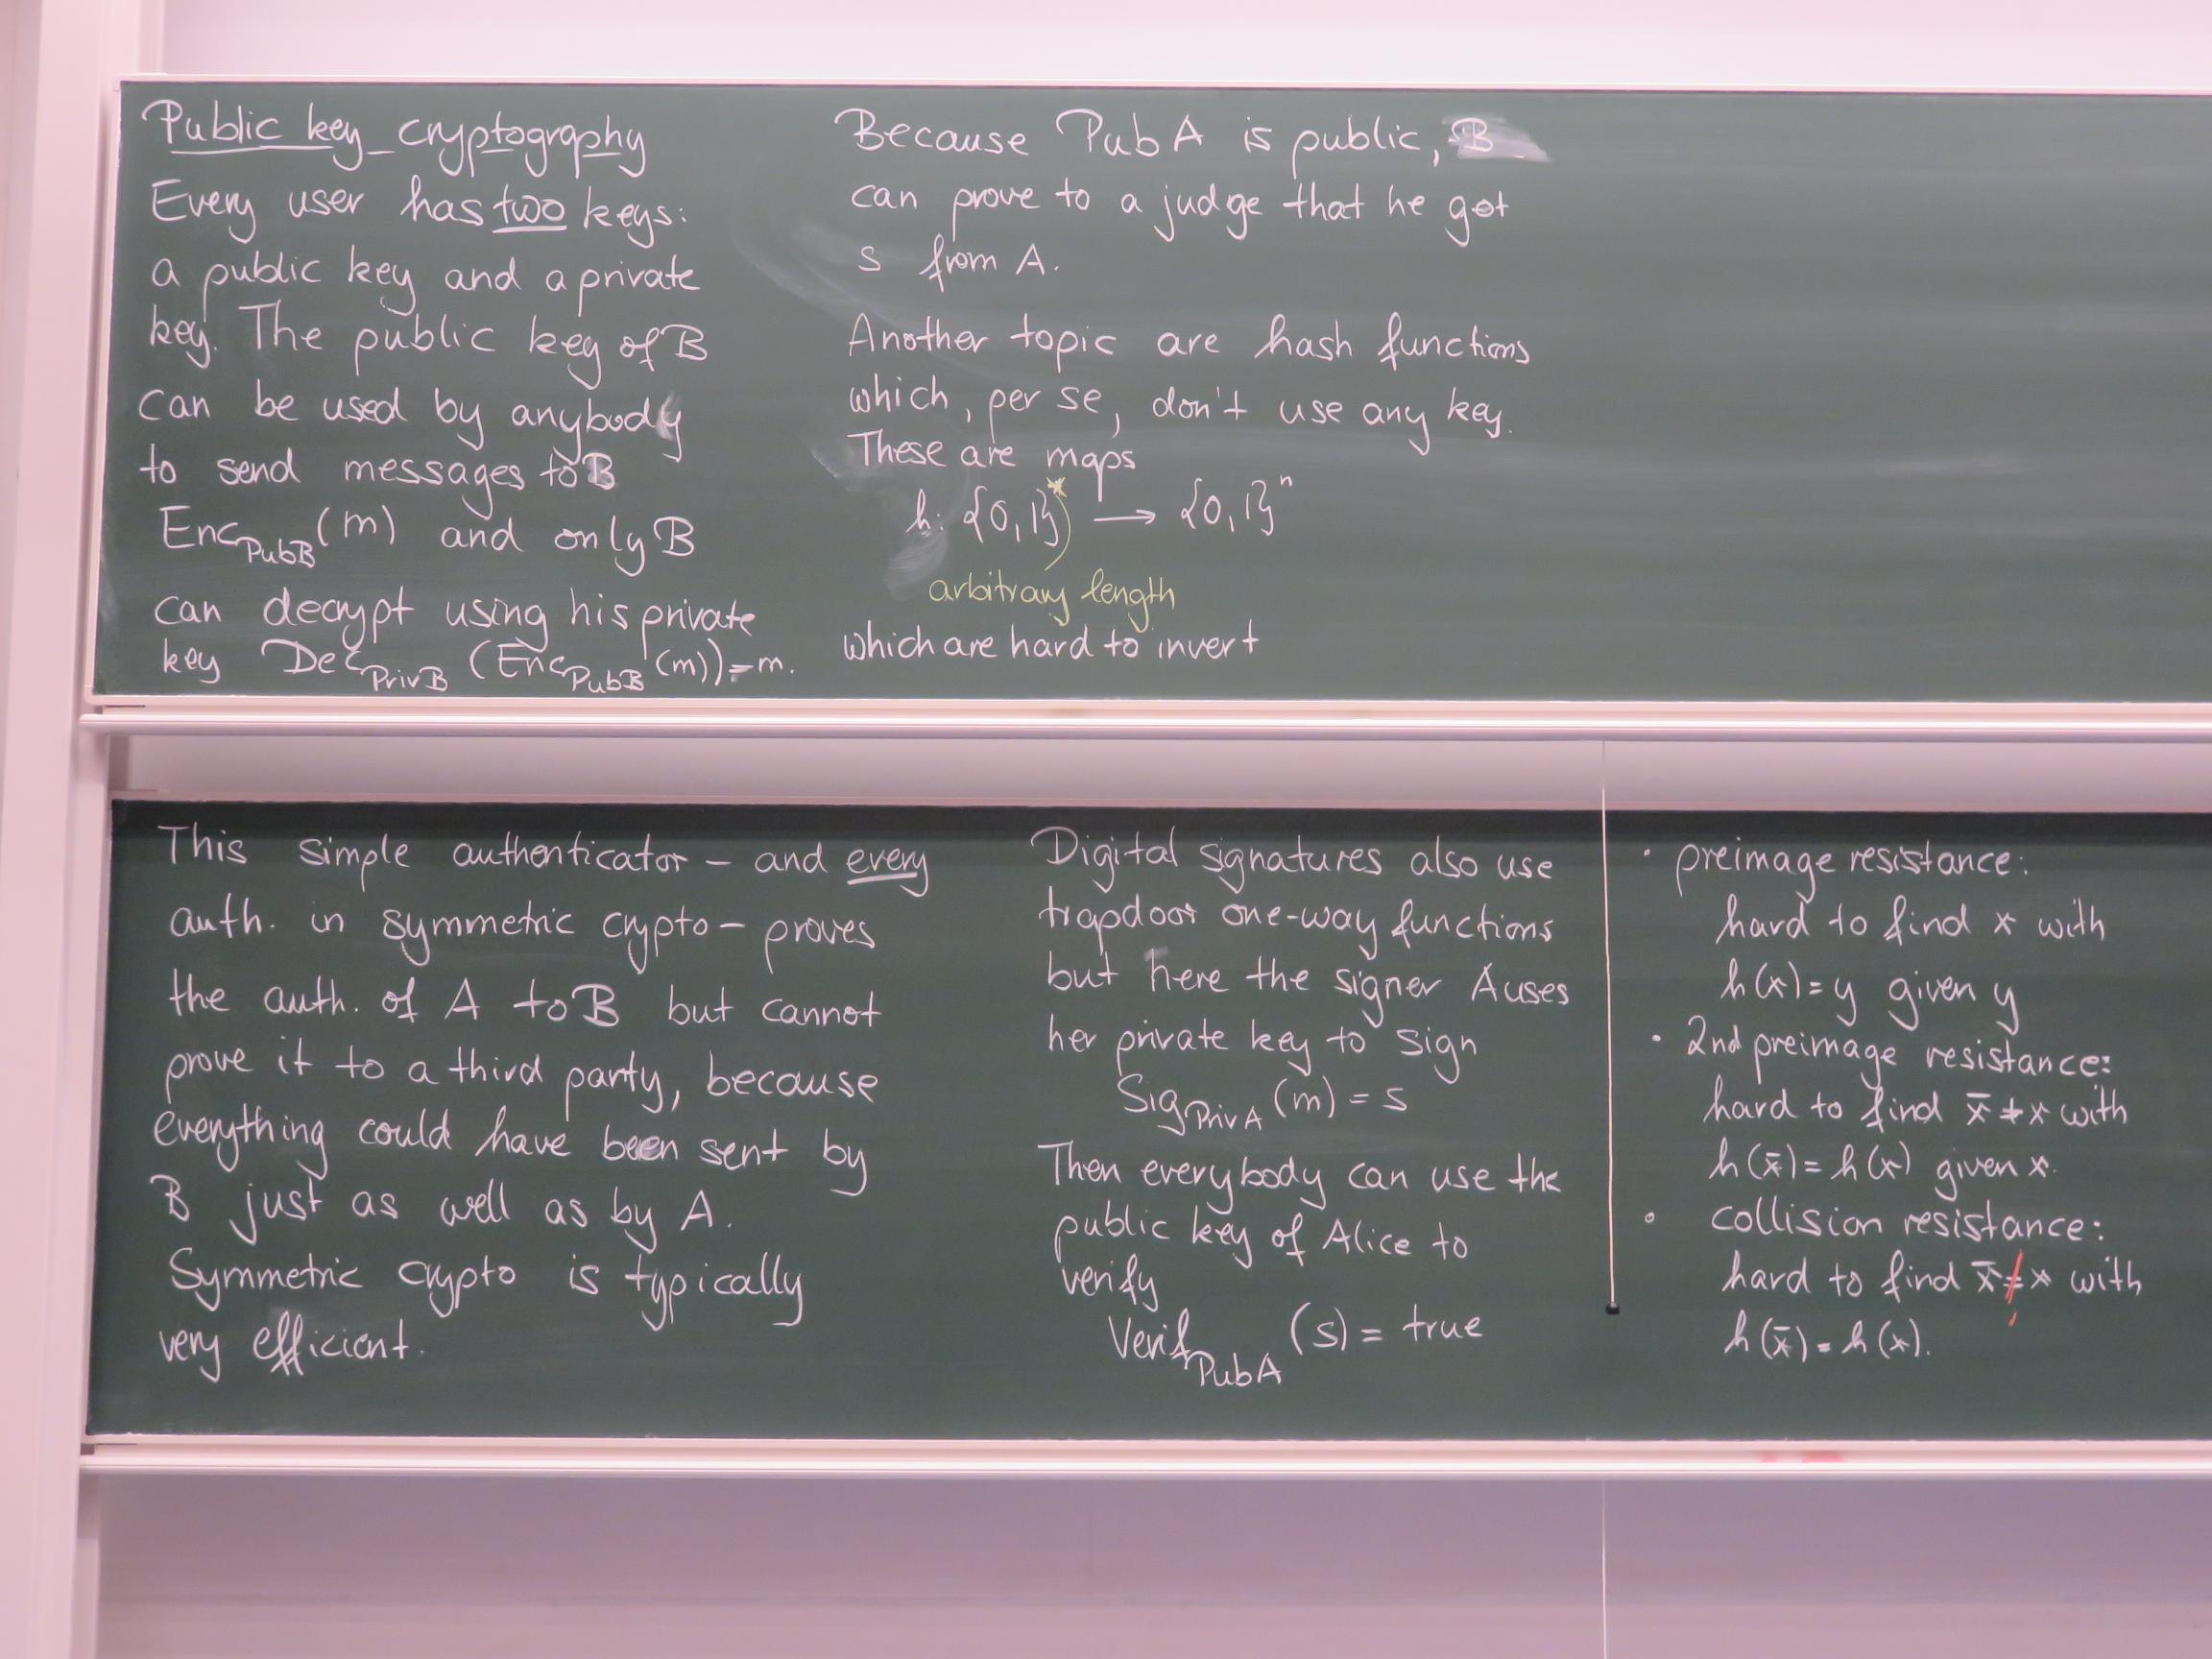 Public key cryptography
Every user has two keys:
a public key and a private
key. The public key of B
can be used by anybody
to send messages to B
Enc_PubB(m) and only B
can decrypt using his private
key Dec_PrivB (Enc_PubB(m)) = m.
Because PubA is public, B
can prove to a judge that he got
s from A.
Another topic are hash functions
which, per se, don't use any key.
These are maps
h: {0,1}* → {0,1}^n
arbitrary length
which are hard to invert
This simple authenticator – and every
auth. in symmetric crypto – proves
the auth. of A to B but cannot
prove it to a third party, because
everything could have been sent by
B just as well as by A.
Symmetric crypto is typically
very efficient.
Digital signatures also use
trapdoor one-way functions
but here the signer A uses
her private key to sign
Sig_PrivA (m) = s
Then everybody can use the
public key of Alice to
verify
Verif_PubA (s) = true
• preimage resistance:
hard to find x with
h(x) = y given y
• 2nd preimage resistance:
hard to find x̄ ≠ x with
h(x̄) = h(x) given x.
• collision resistance:
hard to find x̄ ≠ x with
h(x̄) = h(x).